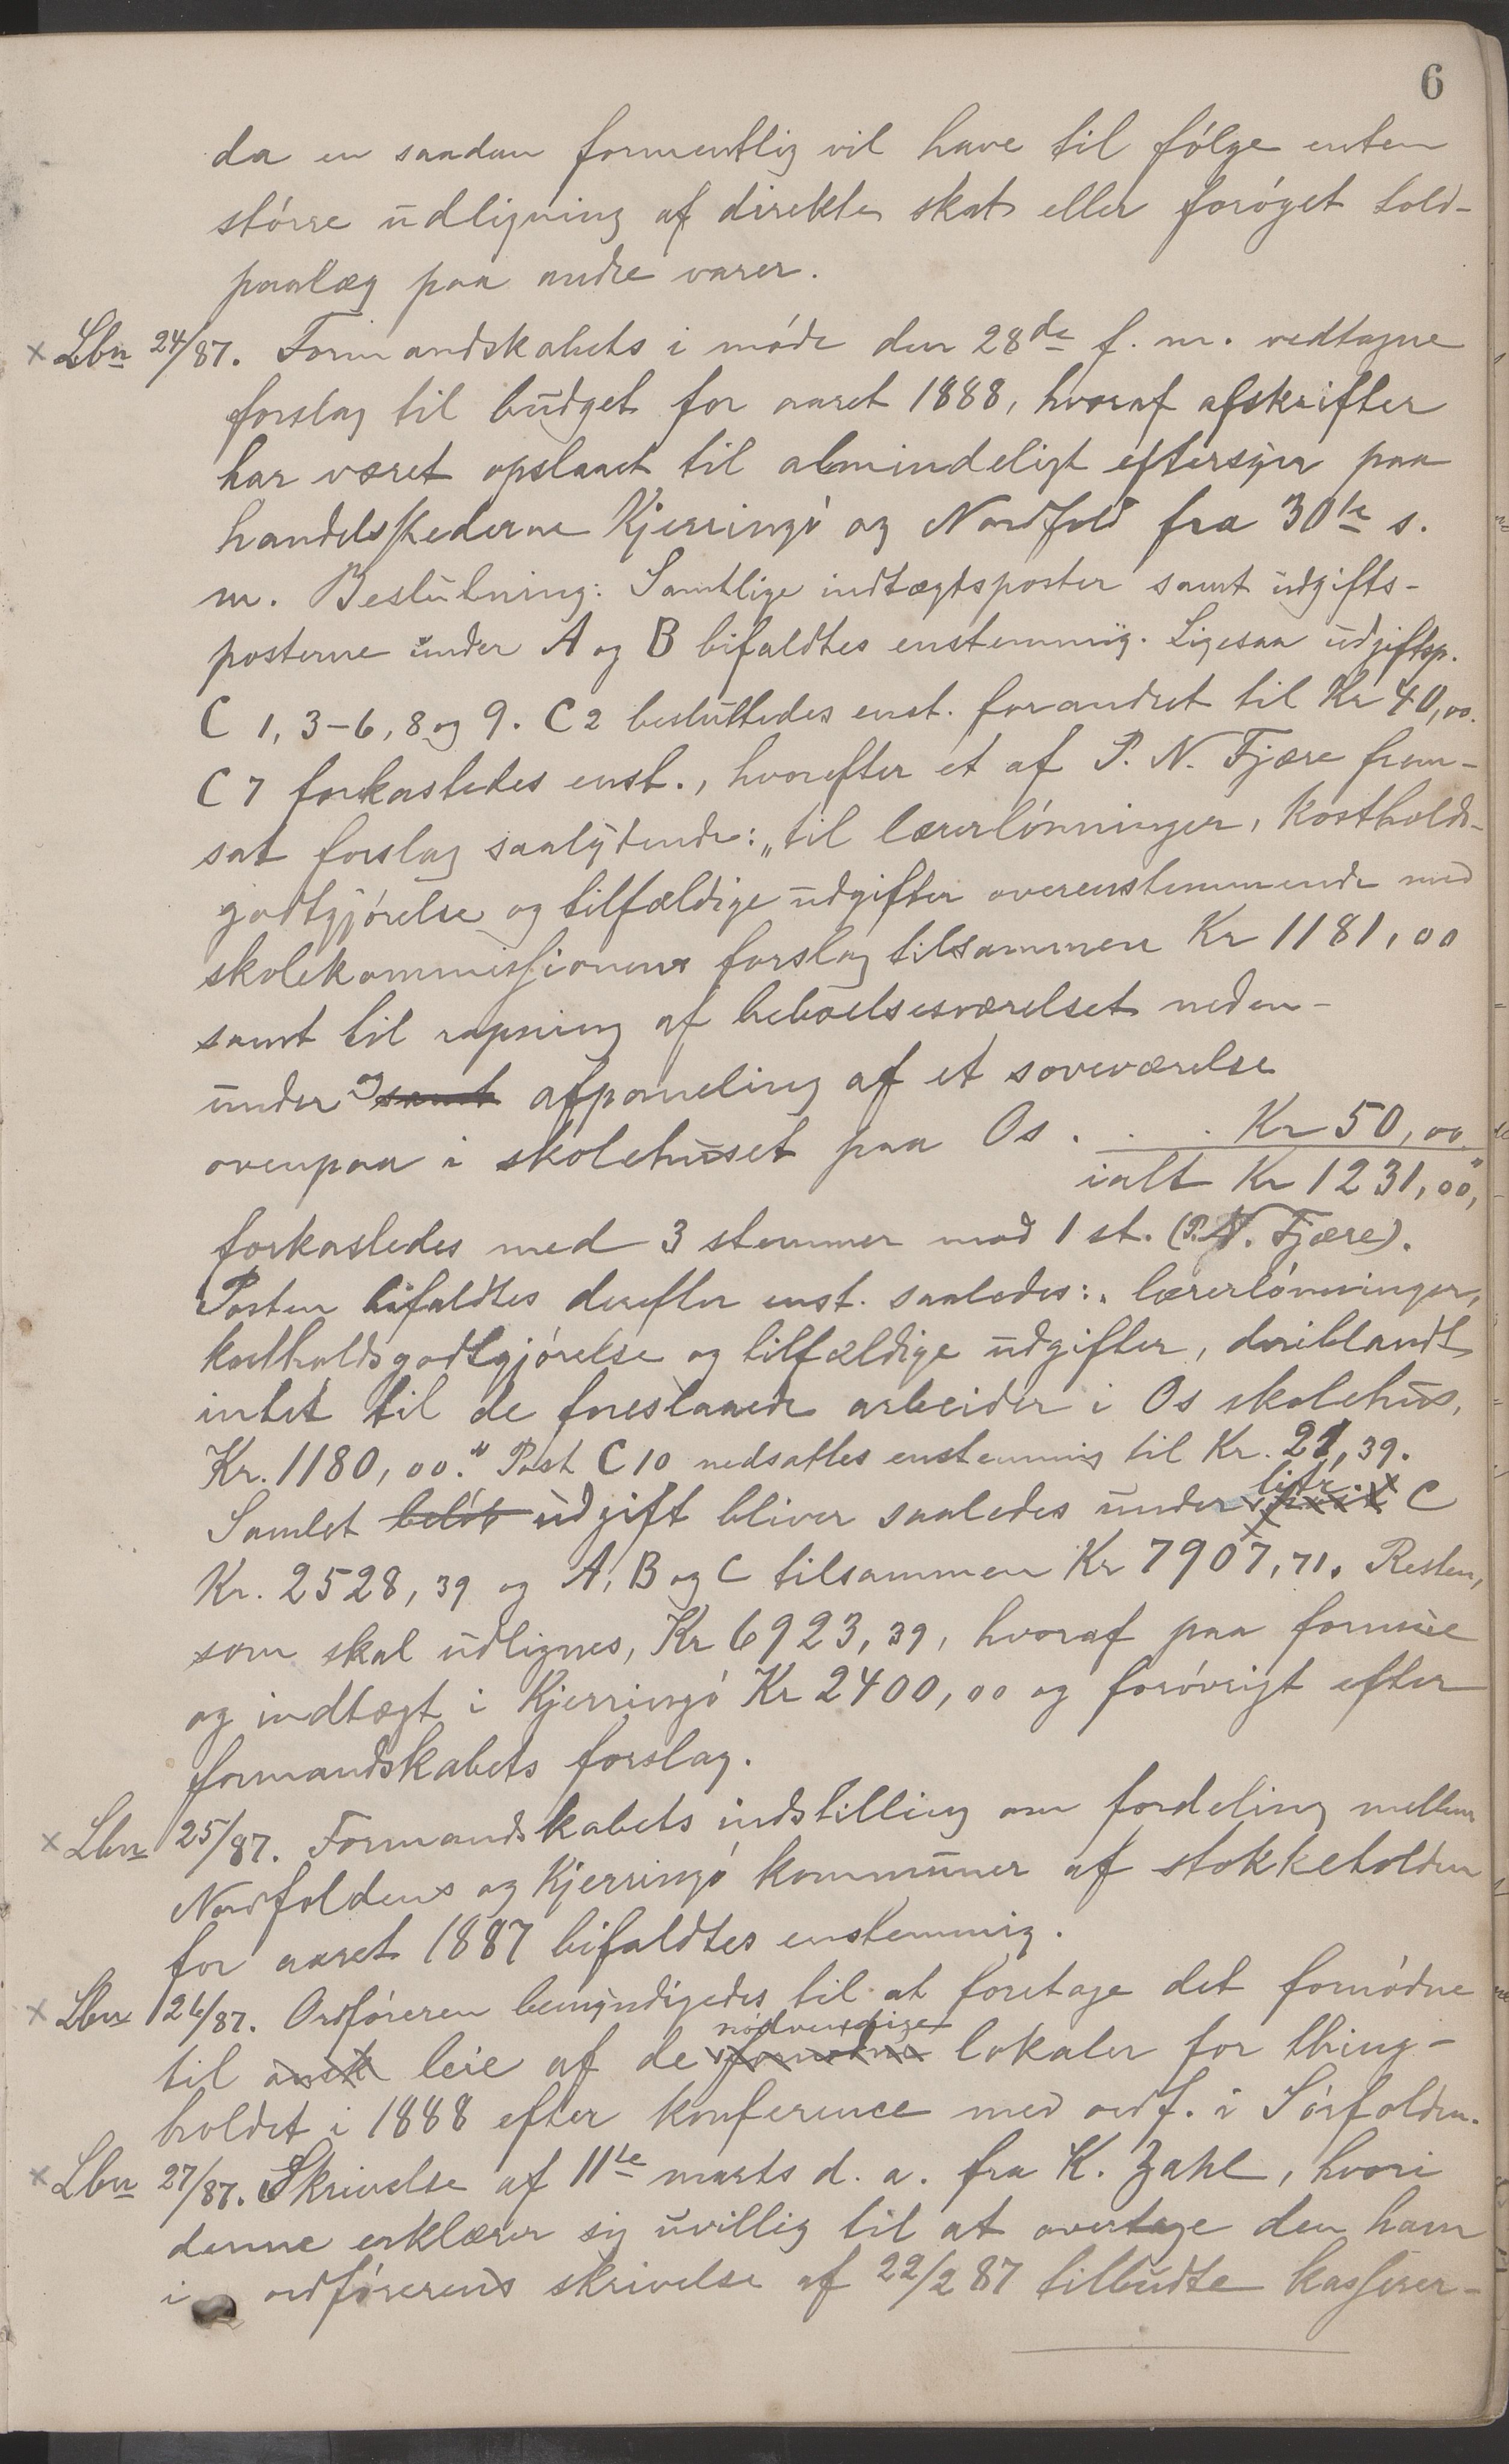 6
da en saadan formentlig vil have til følge enten
større udligning af direkte skat eller forøget told-
paalæg paa andre varer.
× Lbn 24/87. Formandskabets i møde den 28de f. m. vedtagne
forslag til budget for aaret 1888, hvoraf afskrifter
har været opslaaet til almindeligt eftersyn paa
handelsstederne Kjerringø og Nordfold fra 30te s.
m. Beslutning: Samtlige indtægtsposter samt udgifts-
posterne under A og B bifaldtes enstemmig. Ligesaa udgiftsp.
C 1, 3-6, 8 og 9. C 2 besluttedes enst. forandret til Kr 40,00.
C 7 forkastedes enst., hvorefter et af P. N. Fjære frem-
sat forslag saalydende: „til lærerlønninger, kostholds-
godtgjørelse og tilfældige udgifter overenstemmende med
skolekommissionens forslag tilsammen Kr 1181,00
samt til rapning af beboelsesværelset neden-
under og samt afpaneling af et soveværelse
ovenpaa i skolehuset paa Os . . . Kr 50,00
ialt Kr 1231,00",
forkastedes med 3 stemmer mod 1 st. (P. N. Fjære).
Posten bifaldtes derefter enst. saaledes: „lærerlønninger,
kostholdsgodtgjørelse og tilfældige udgifter, deriblandt
intet til de foreslaaede arbeider i Os skolehus,
Kr. 1180,00." Post C 10 nedsattes enstemmig til Kr. 21,39.
Samlet beløb udgift bliver saaledes under litr. C
Kr. 2528,39 og A, B og C tilsammen Kr 7907,71. Resten,
som skal udlignes, Kr 6923,39, hvoraf paa formue
og indtægt i Kjerringø Kr 2400,00 og forøvrigt efter
formandskabets forslag.
× Lbn 25/87. Formandskabets indstilling om fordeling mellem
Nordfoldens og Kjerringø kommuner af stokketolden
for aaret 1887 bifaldtes enstemmig.
× Lbn 26/87. Ordføreren bemyndigedes til at foretage det fornødne
til leie af de fornødne nødvendige lokaler for thing-
holdet i 1888 efter konference med ordf. i Sørfolden.
× Lbn 27/87. Skrivelse af 11te marts d. a. fra K. Zahl, hvori
denne erklærer sig uvillig til at overtage den ham
i ordførerens skrivelse af 22/2 87 tilbudte kasserer-